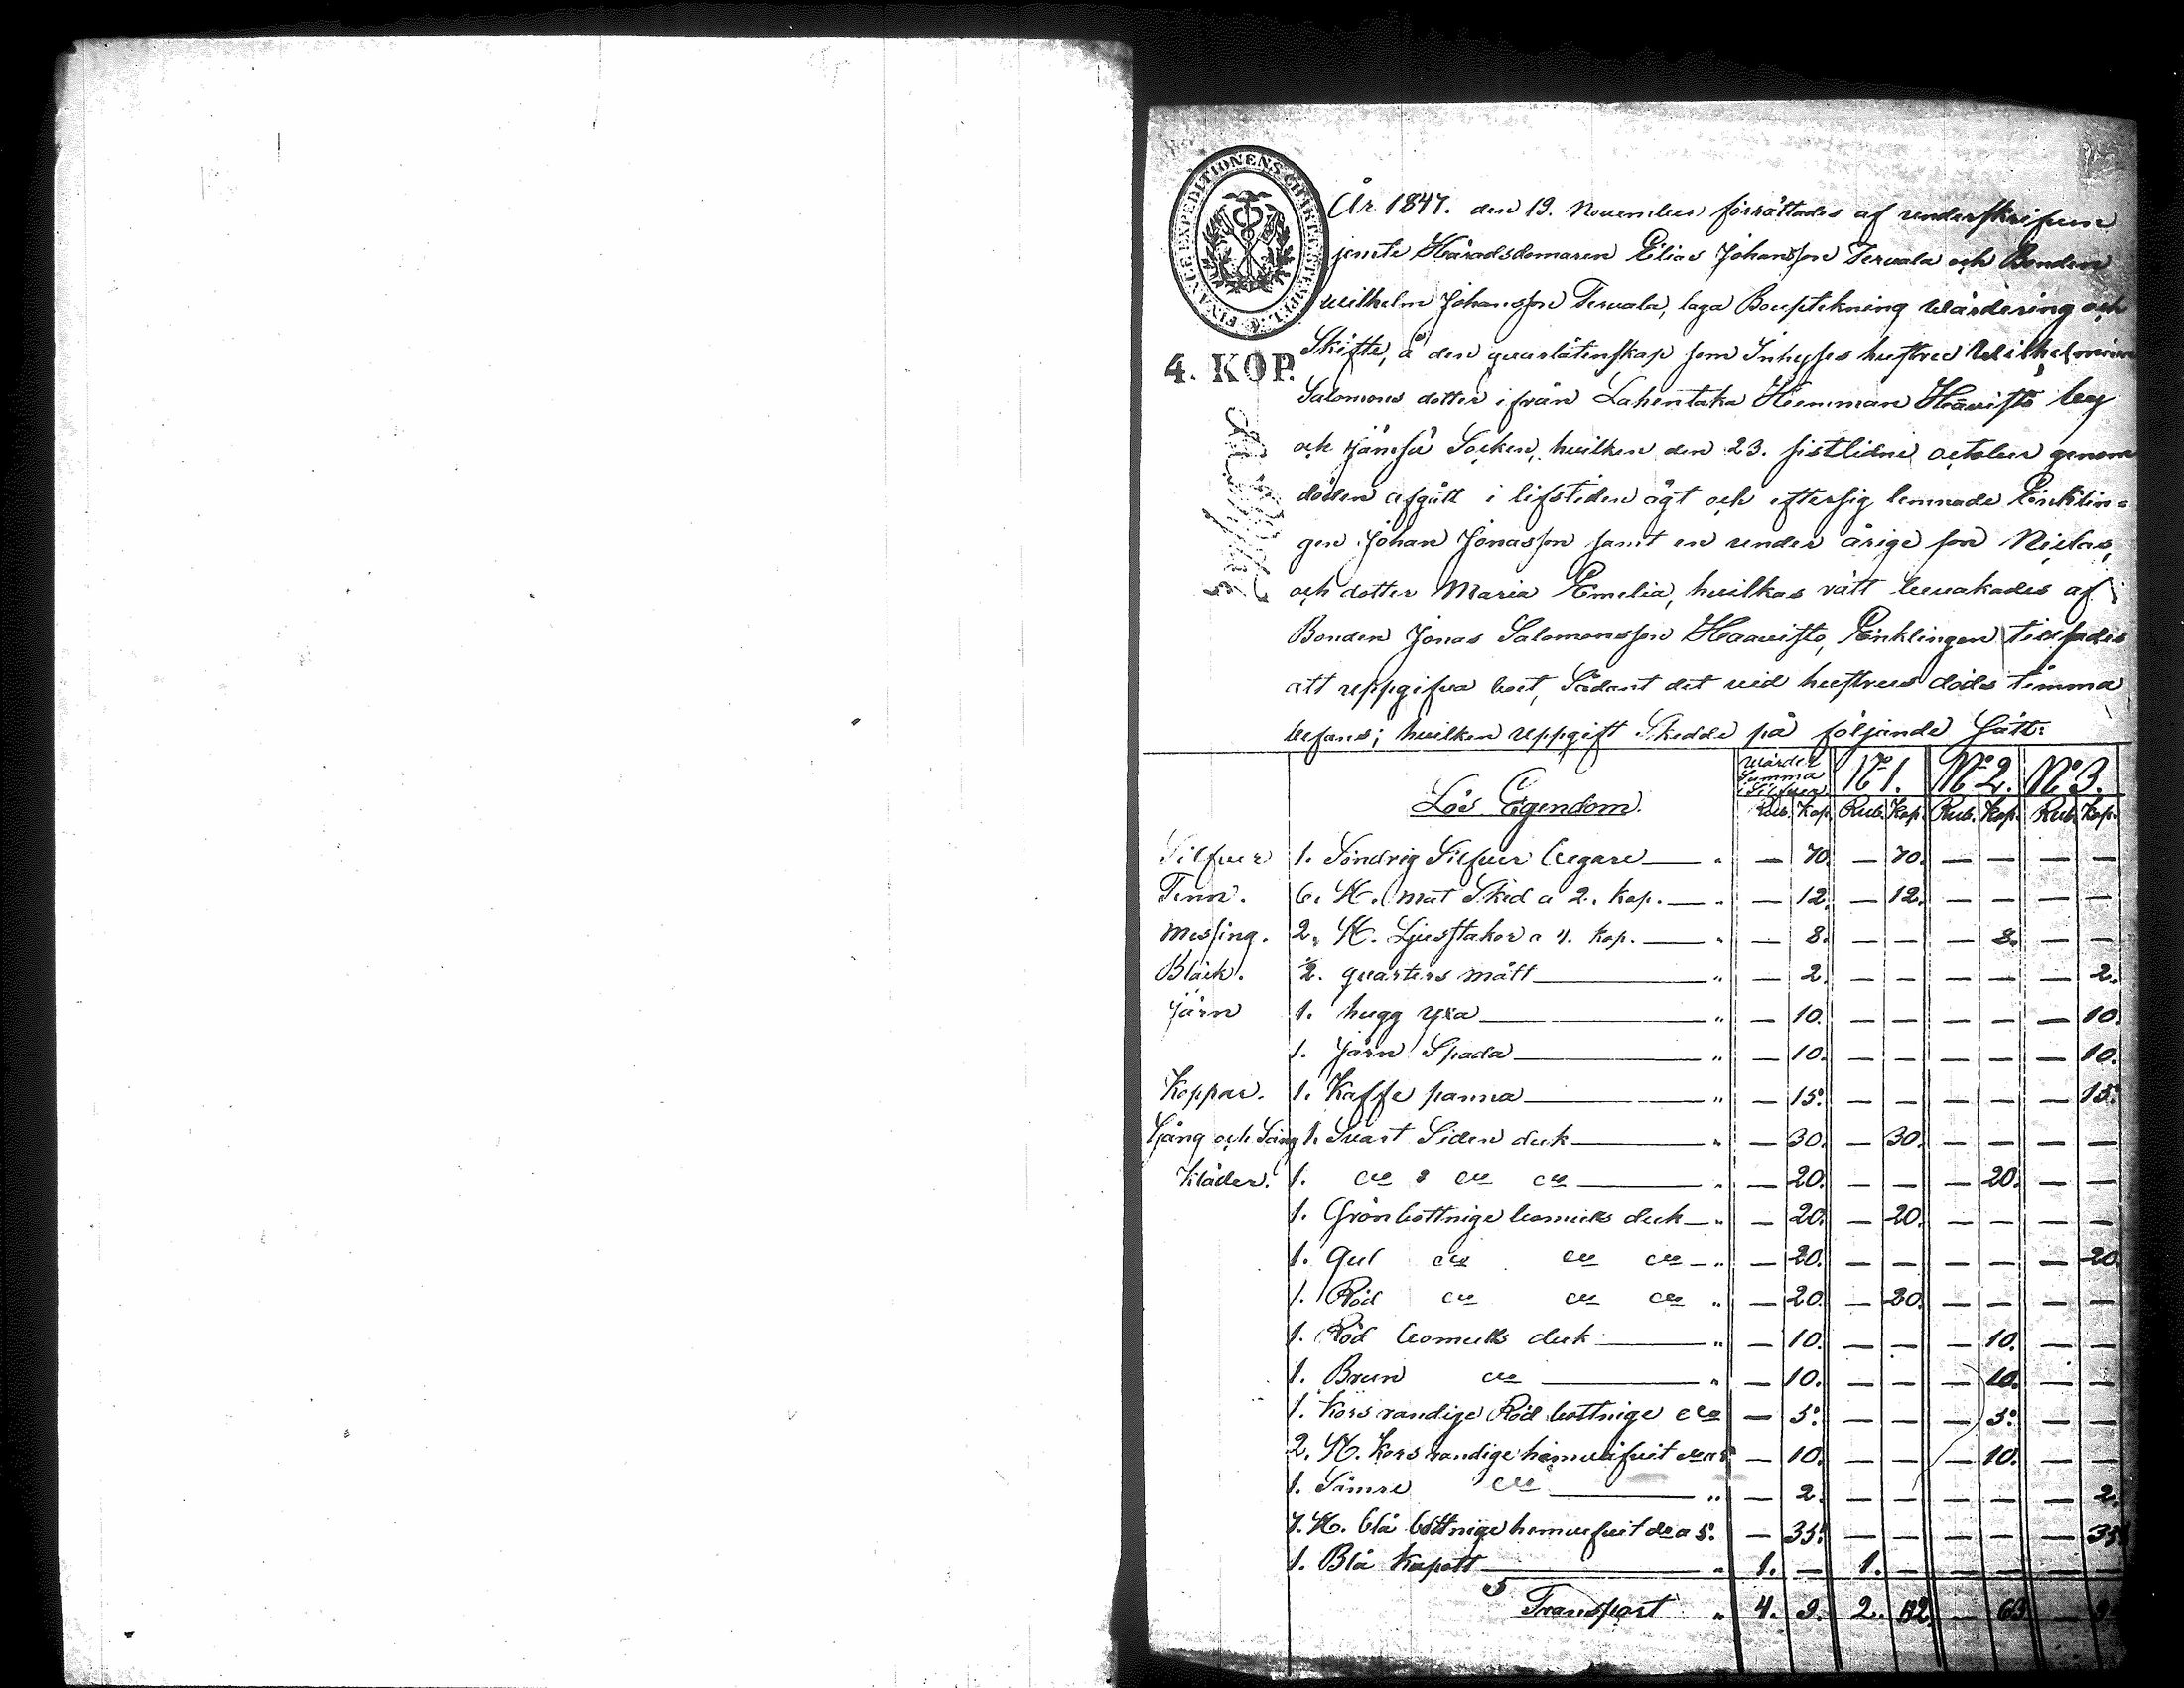 FINANCE EXPEDITIONENS CHARTÆ STEMPEL
4. KOP.
År 1847. den 19. November förrättades af underskrifven
jemte Häradsdomaren Elias Johansson Tervala och Bonden
Wilhelm Johansson Tervala, laga Bouptekning Wärdering och
Skifte, å den qvarlåtenskap som Inhyses hustru Wilhelmina
Salomons dotter ifrån Lahentaka Hemman Haavisto by
och Jämsä Socken, hvilken den 23. sistlidne october genom
döden afgått i lifstiden ägt och eftersig lemnade Enklin=
gen Johan Jonasson samt en under årige son Niclas,
och dotter Maria Emelia, hvilkas rätt bevakades af
Bonden Jonas Salomonsson Haavisto, Enklingen tillsades
att uppgifva boet, Sådant det vid hustrus döds timma
befans; hvilken uppgift Skedde på följande Sätt:
Lös Egendom. Wärder Summa i Silfver No 1. No 2. No 3.
Rub. Kop. Rub. Kop. Rub. Kop. Rub. Kop.
Silfver 1. Söndrig Silfver begare — „ — 70. — 70. — — — —
Tenn. 6. St. mat Sked a 2. kop. — „ — 12. — 12. — — — —
Messing. 2. St. Ljusstakor a 4. kop. — „ — 8. — — — 8. — —
Bläck. ½. qvarters mått — „ — 2. — — — — — 2.
Järn 1. hugg yxa — „ — 10. — — — — — 10.
1. Järn Spada — „ — 10. — — — — — 10.
Koppar. 1. Kaffe panna — „ — 15. — — — — — 15.
Gång och Säng 1. Svart Siden duk — „ — 30. — 30. — — — —
Kläder. 1. do do do — „ — 20. — — — 20. — —
1. Grön bottnige bomulls duk — „ — 20. — 20. — — — —
1. Gul do do do — „ — 20. — — — — — 20.
1. Röd do do do „ — 20. — 20. — — — —
1. Röd bomulls duk — „ — 10. — — — 10. — —
1. Brun do — „ — 10. — — — 10. — —
1. Kors randige Röd bottnige do — 5. — — — 5. — —
2. St. Kors randige hemväfvit do a 5. — 10. — — — 10. — —
1. Sämre do — „ — 2. — — — — — 2.
7. St. blå bottnige hemväfvit do a 5. — 35. — — — — — 35.
1. Blå Kapott — „ 1. — 1. — — — — —
Transport „ 4. 9. 2. 52. — 63. —